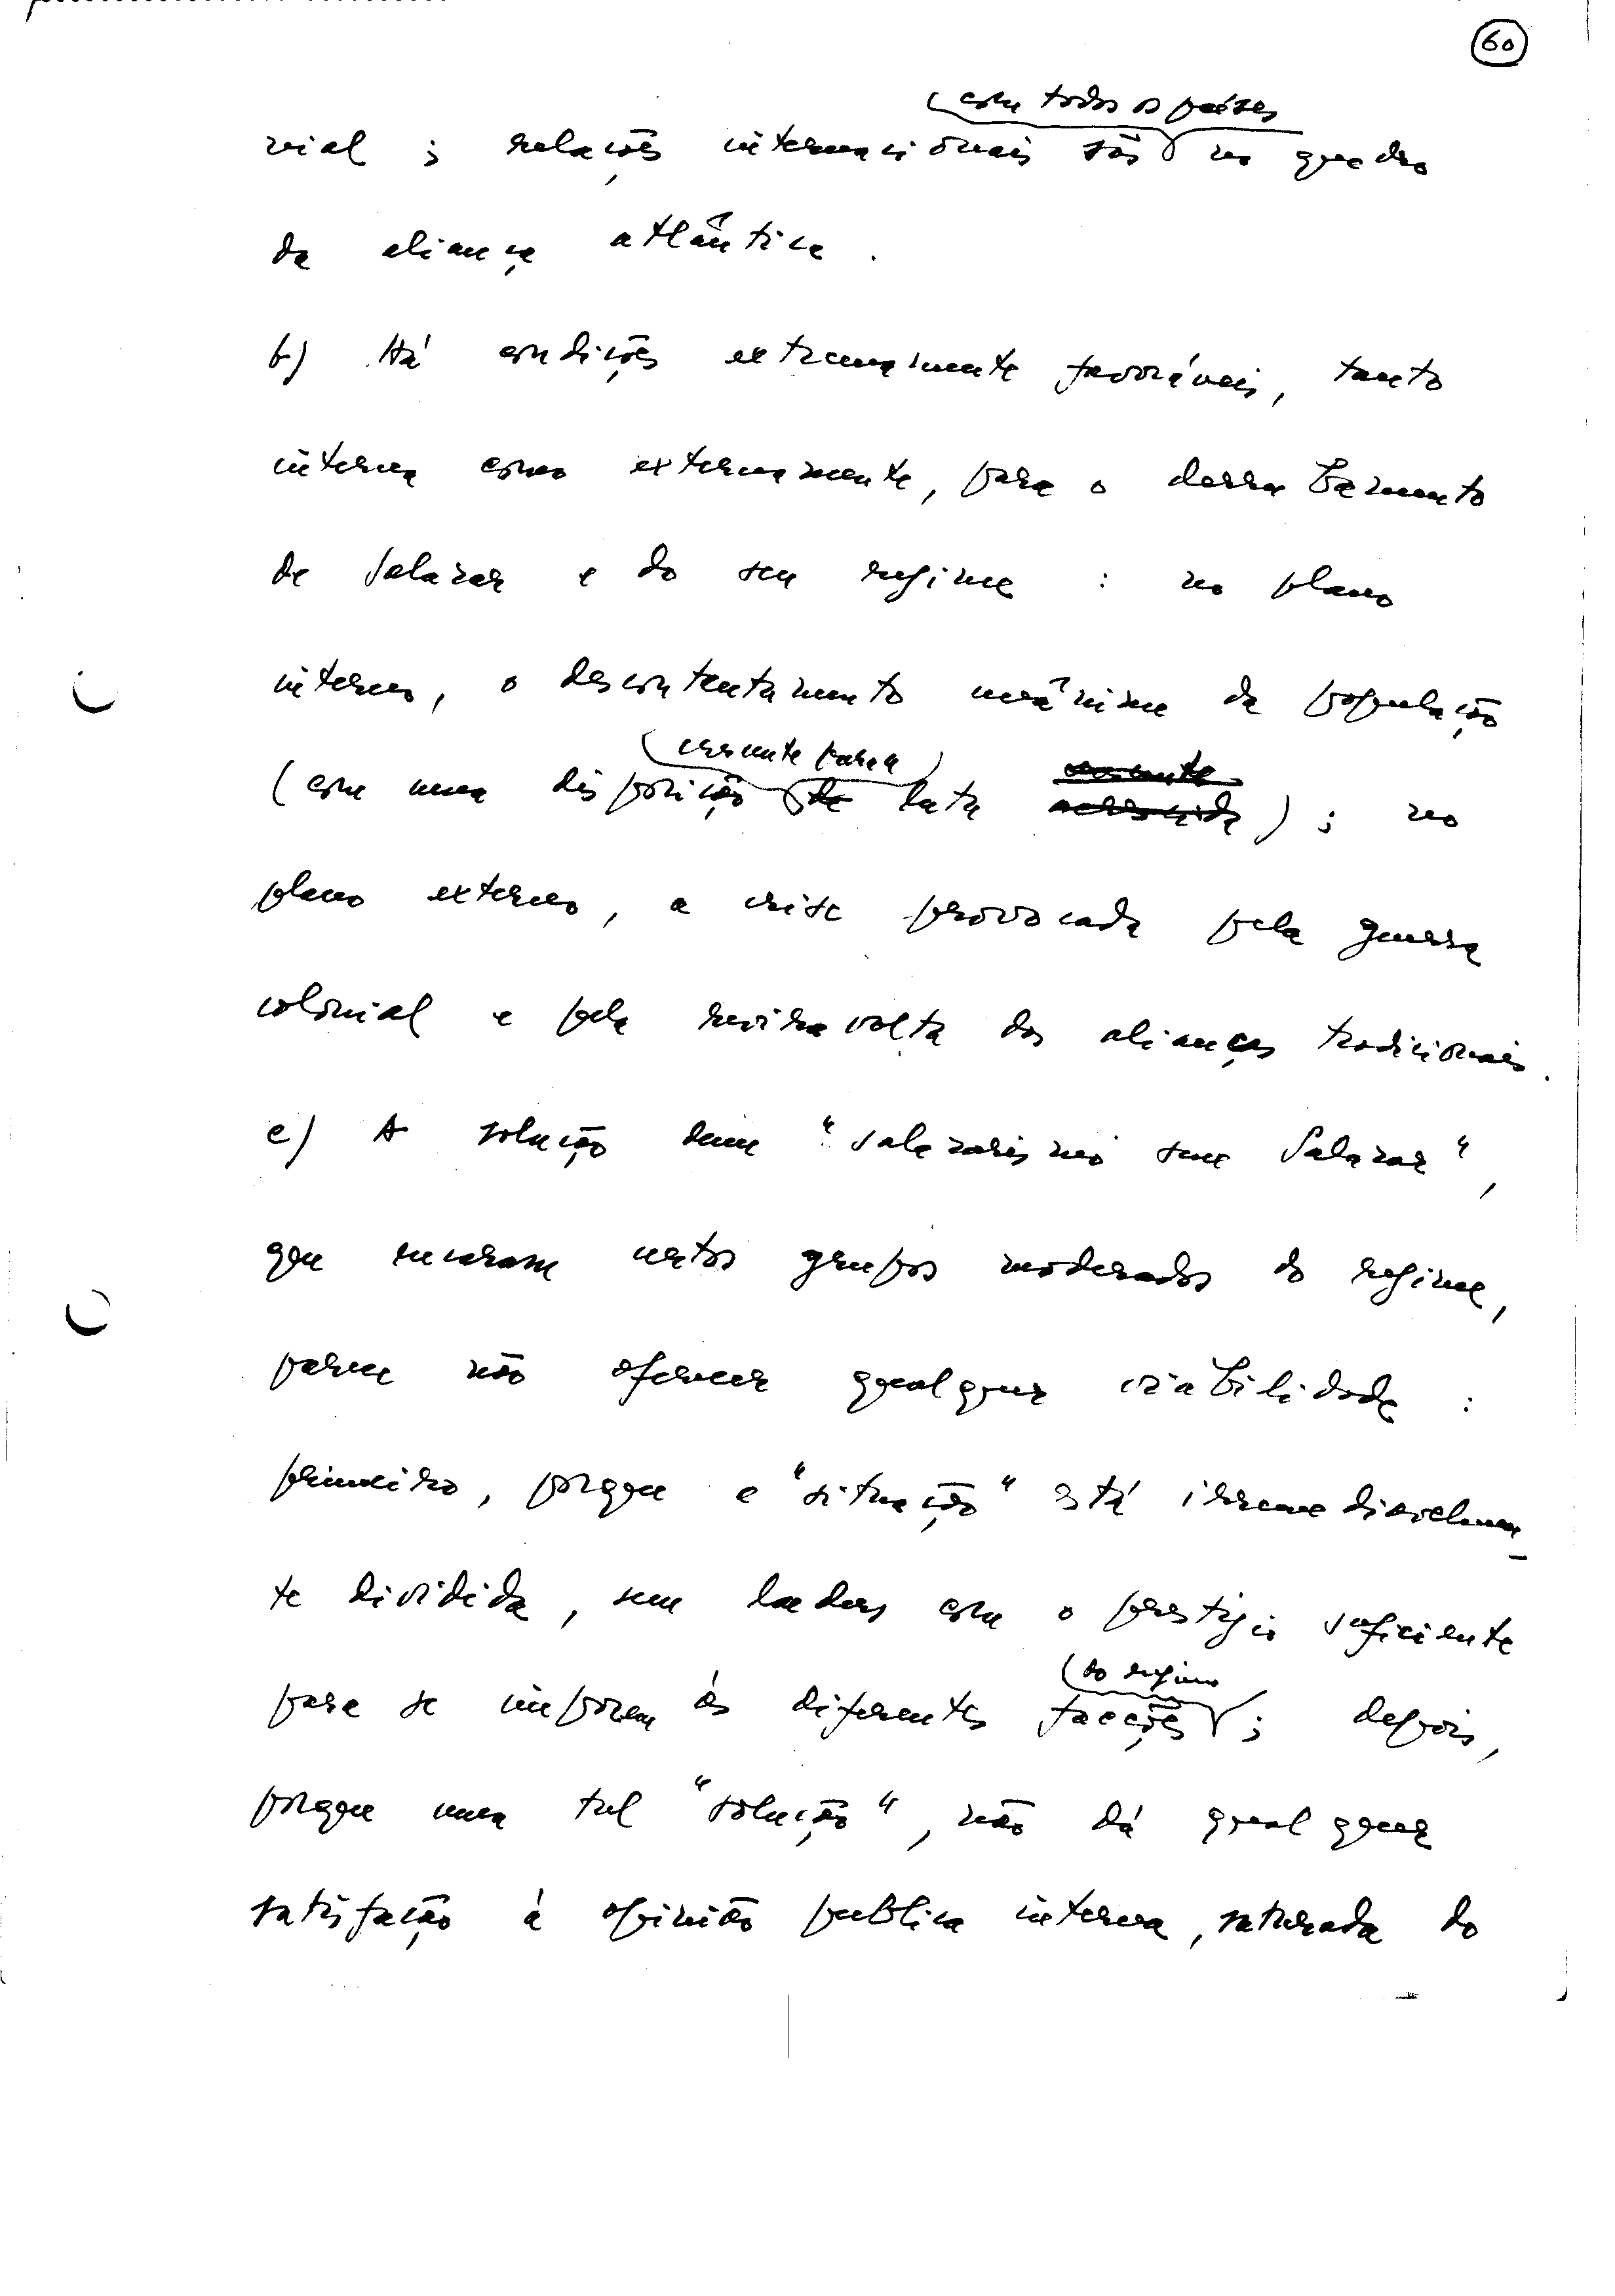 60
com todos os países
nial ; relações internacionais sãs no quadro
da aliança atlântica .
b) Há condições extremamente favoráveis, tanto
interna como externamente, para o derrubamento
de Salazar e do seu regime : no plano
interno, o descontentamento unânime da população
crescente para a
(com uma disposição de luta crescente ) ; no
plano externo, a crise provocada pela guerra
colonial e pela reviravolta das alianças tradicionais.
c) A solução dum "salazarismo sem Salazar",
que encaram certos grupos moderados do regime,
parece não oferecer qualquer viabilidade :
primeiro, porque a "situação" está irremediavelmen-
te dividida, sem leaders com o prestígio suficiente
do regime
para se imporem às diferentes facções ; depois,
porque uma tal "solução", não dá qualquer
satisfação à opinião publica interna, saturada do